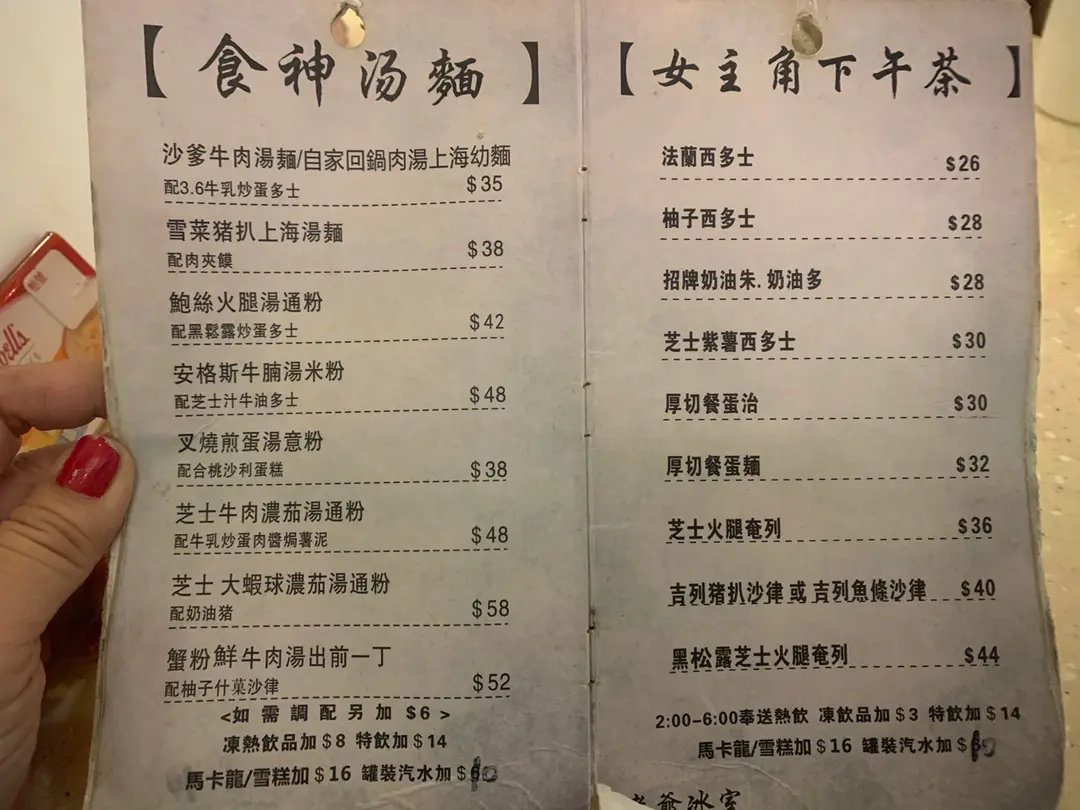 【食神汤麵】
沙爹牛肉湯麵/自家回鍋肉湯上海幼麵
配3.6牛乳炒蛋多士 $35
雪菜猪扒上海湯麵
配肉夾饃 $38
鮑絲火腿湯通粉
配黑鬆露炒蛋多士 $42
安格斯牛腩湯米粉
配芝士汁牛油多士 $48
叉燒煎蛋湯意粉
配合桃沙利蛋糕 $38
芝士牛肉濃茄湯通粉
配牛乳炒蛋肉醬焗薯泥 $48
芝士 大蝦球濃茄湯通粉
配奶油猪 $58
蟹粉鮮牛肉湯出前一丁
配柚子什菓沙律 $52
<如需調配另加 $6>
凍熱飲品加$8 特飲加$14
馬卡龍/雪糕加$16 罐裝汽水加$10
【女主角下午茶】
法蘭西多士 $26
柚子西多士 $28
招牌奶油朱.奶油多 $28
芝士紫薯西多士 $30
厚切餐蛋治 $30
厚切餐蛋麵 $32
芝士火腿奄列 $36
吉列猪扒沙律 或 吉列魚條沙律 $40
黑松露芝士火腿奄列 $44
2:00-6:00奉送熱飲 凍飲品加$3 特飲加$14
馬卡龍/雪糕加$16 罐裝汽水加$10
爺冰室